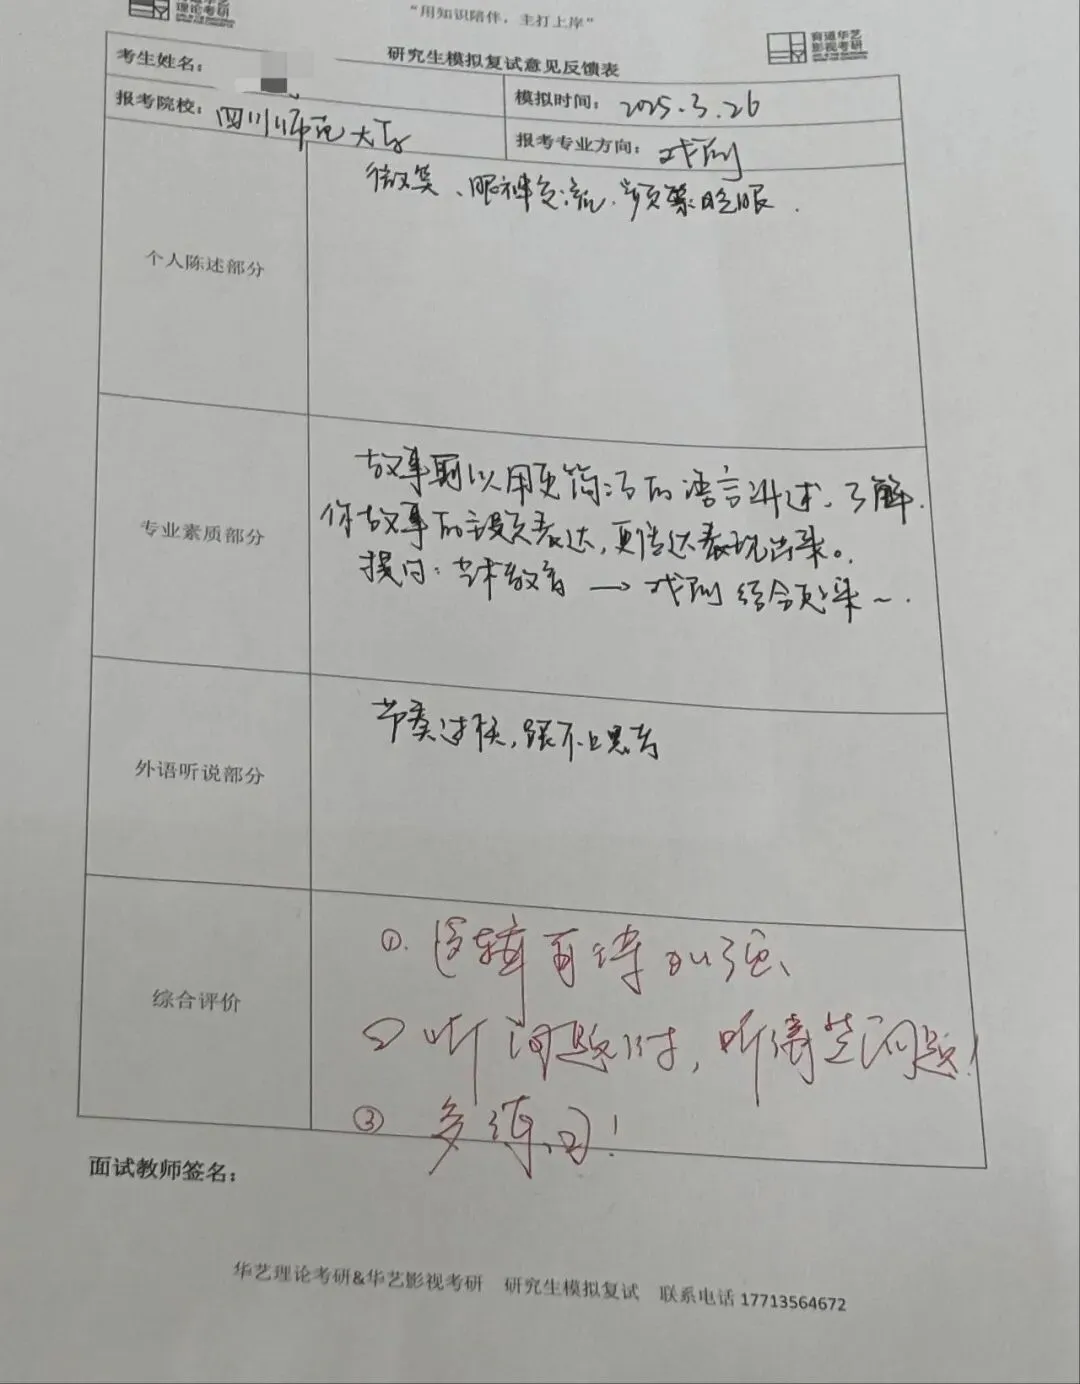 理论考研
"用知识陪伴，主打上岸"
育道华艺
影视考研
研究生模拟复试意见反馈表
考生姓名：
模拟时间：2025.3.26
报考院校：四川师范大学
报考专业方向：戏剧
个人陈述部分
微笑、眼神交流
专业素质部分
故事可以用更简洁的语言讲述，了解
你故事的表达，更传达表现出来。
提问：艺术教育→戏剧 结合起来～.
外语听说部分
节奏过快，跟不上思考
综合评价
①.逻辑有待加强、
②听问题时，听清楚问题！
③多练习！
面试教师签名：
华艺理论考研&华艺影视考研 研究生模拟复试 联系电话 17713564672